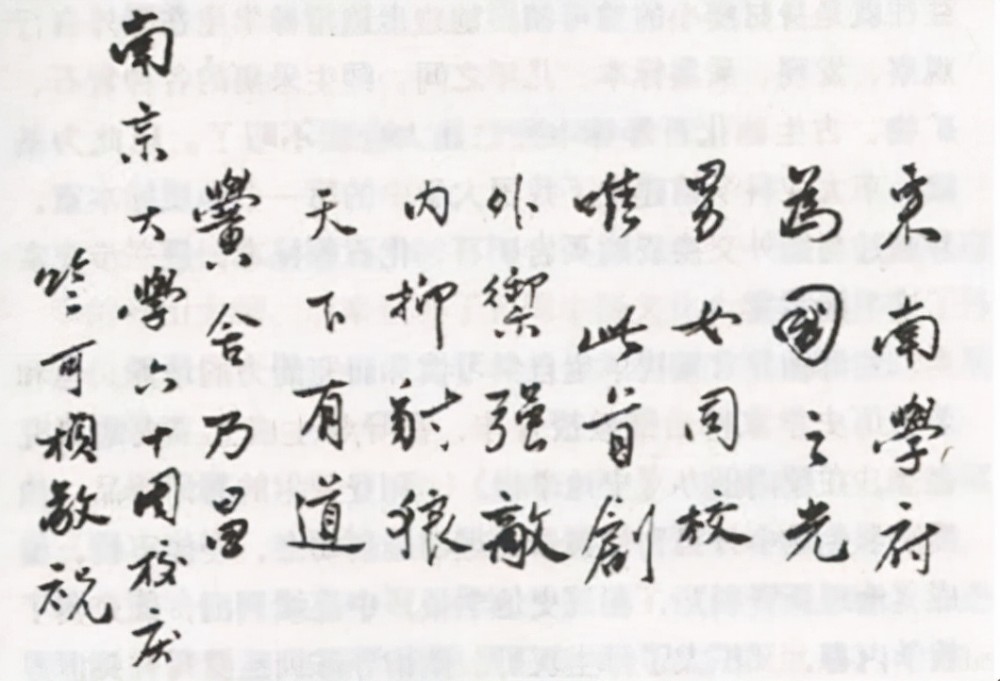 東南學府
為國之光
男女同校
唯此首創
外禦强敵
内抑豺狼
天下有道
黌舍乃昌
南京大學六十周校庆
竺可楨敬祝